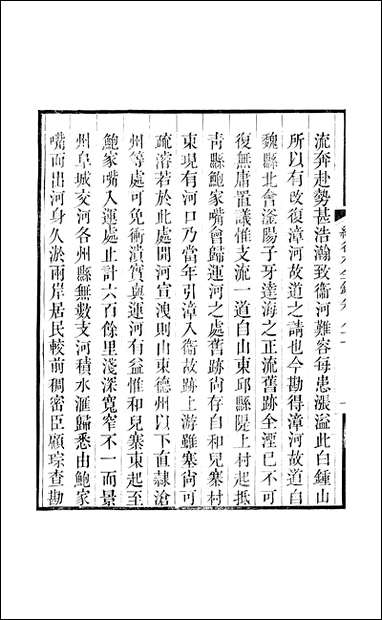 流奔赴勢甚浩瀚致衞河難容每患漲溢此白鍾山
所以有改復漳河故道之請也今勘得漳河故道自
魏縣北會滏陽子牙達海之正流舊跡全湮已不可
復無庸置議惟支流一道自山東邱縣隄上村起抵
青縣鮑家嘴會歸運河之處舊跡尙存自和兒寨村
東現有河口乃當年引漳入衞故跡上游雖塞尙可
疏濬若於此處開河宣洩則山東德州以下直隷滄
州等處可免衝潰實與運河有益惟和兒寨東起至
鮑家嘴入運處止計六百餘里淺深寬窄不一而景
州阜城交河各州縣無數支河積水滙歸悉由鮑家
嘴而出河身久淤兩岸居民較前稠密臣顧琮查勘